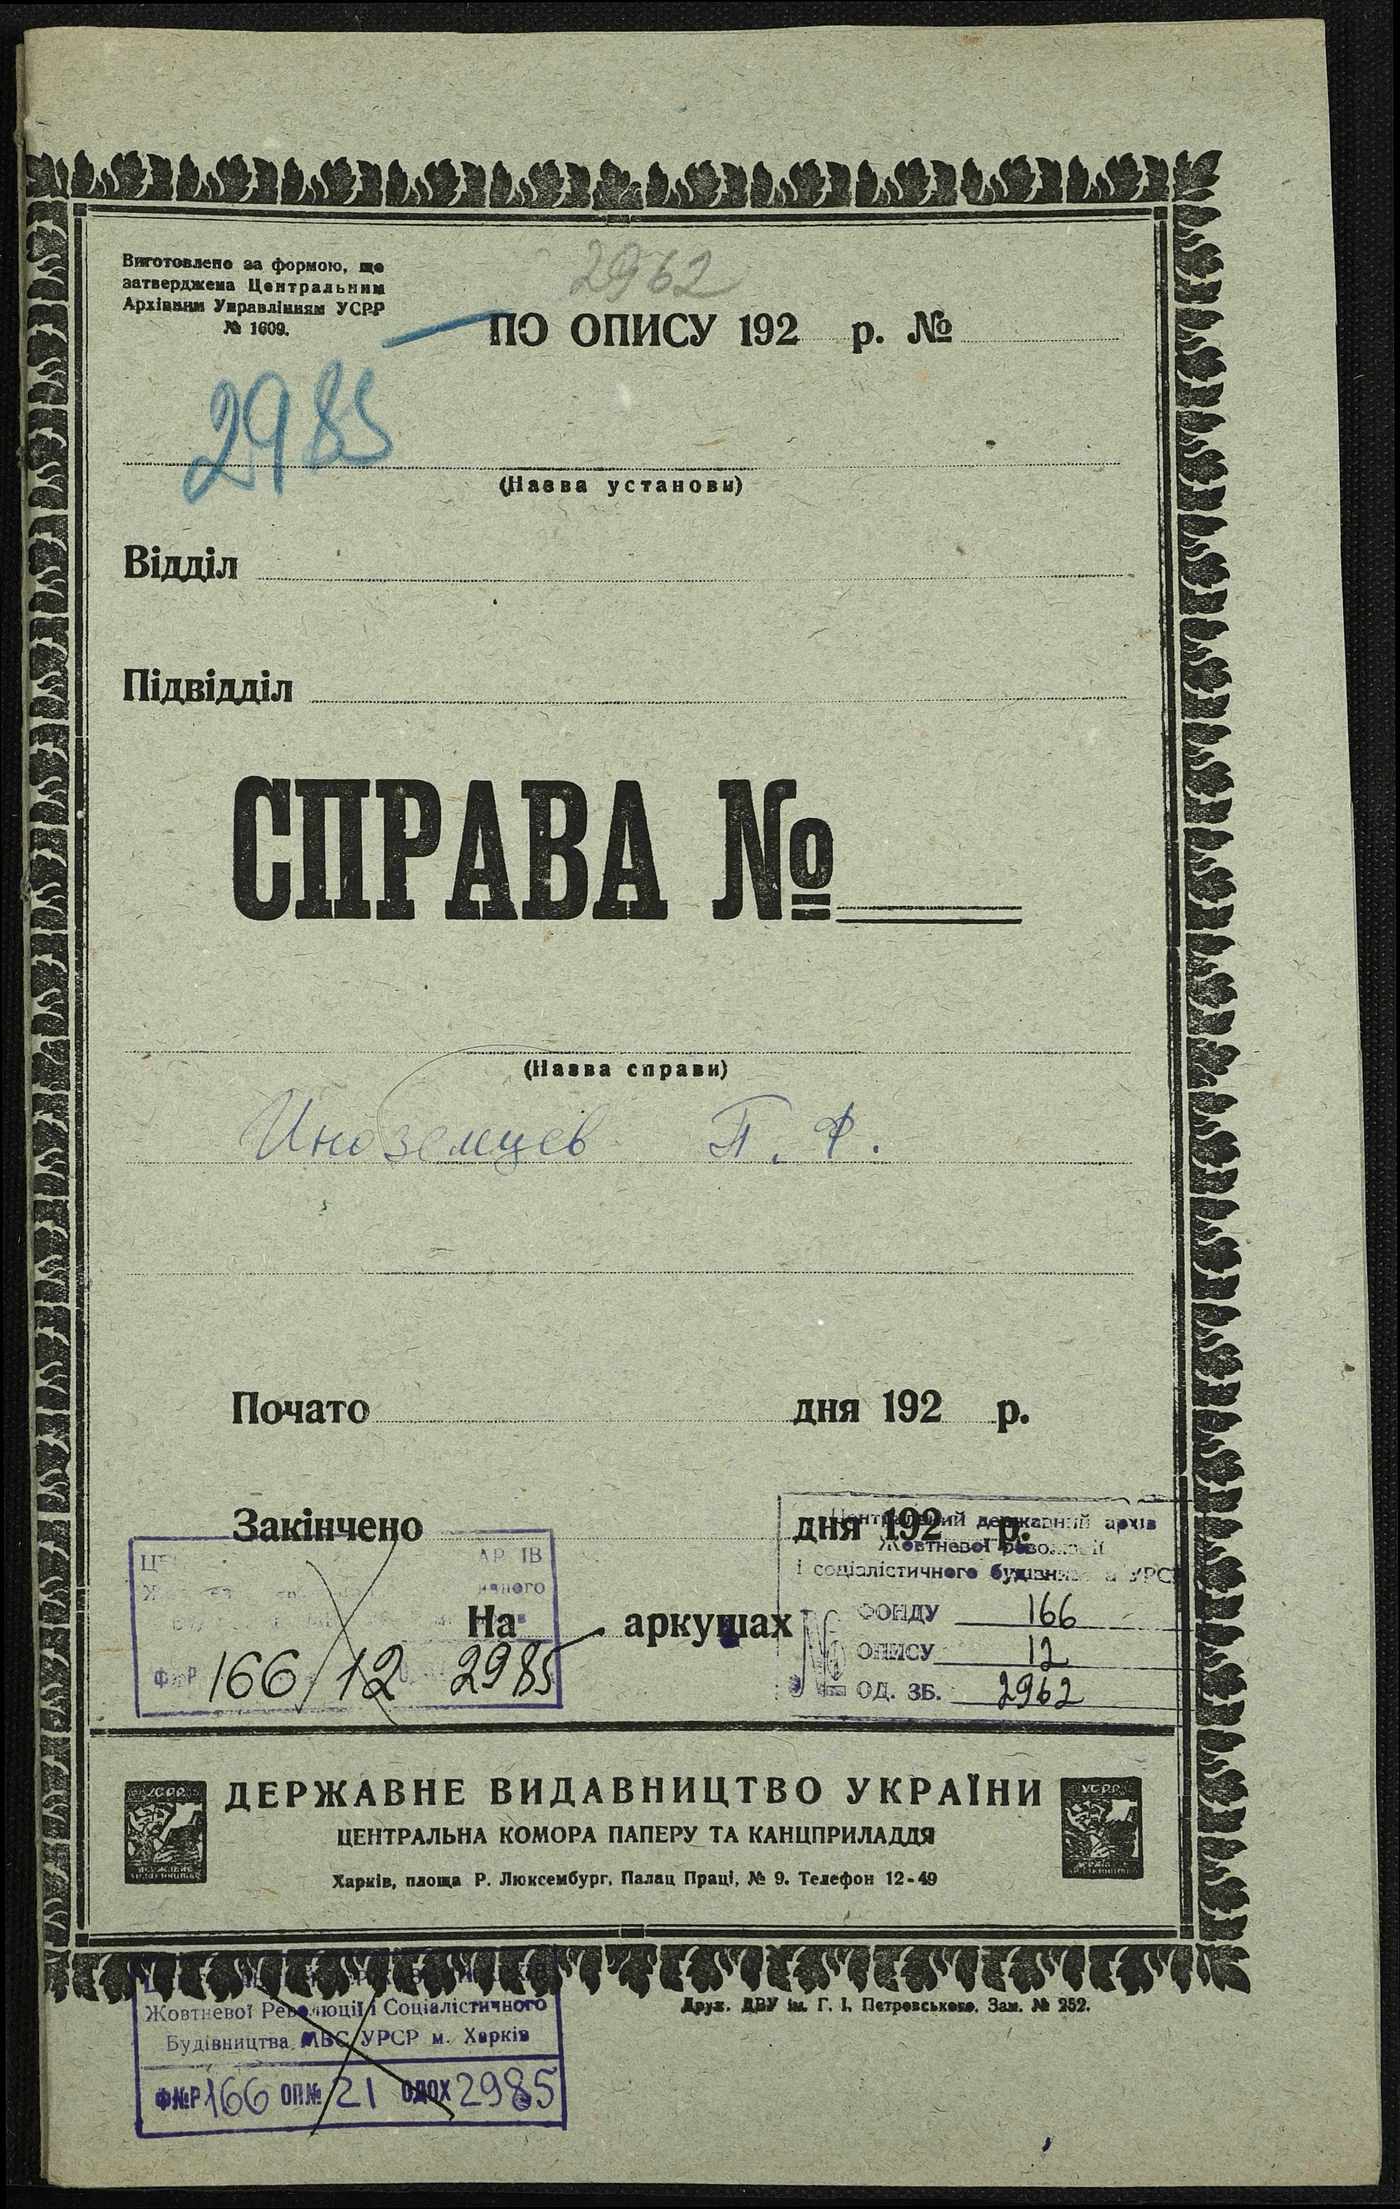 2962
Виготовлено за формою, що
затверджена Центральним
Архівним Управлінням УСРР
№ 1609.
ПО ОПИСУ 192 р. №
2985
(Назва установи)
Відділ
Підвідділ
СПРАВА №
(Назва справи)
Иноземцев П. Ф.
Почато дня 192 р.
Закінчено дня 192 р.
На аркушах
АРХІВ
Ф№Р 166/12 2985
Центральний державний архів
Жовтневої революції
і соціалістичного будівництва УРСР
№ ФОНДУ 166
ОПИСУ 12
ОД. ЗБ. 2962
ДЕРЖАВНЕ ВИДАВНИЦТВО УКРАЇНИ
ЦЕНТРАЛЬНА КОМОРА ПАПЕРУ ТА КАНЦПРИЛАДДЯ
Харків, площа Р. Люксембург, Палац Праці, № 9. Телефон 12-49
УСРР
УСРР
Друк. ДВУ ім. Г. І. Петровського. Зам. № 252.
Жовтневої Революції і Соціалістичного
Будівництва МВС УРСР м. Харків
Ф№Р 166 ОП№ 21 ОДОХ 2985